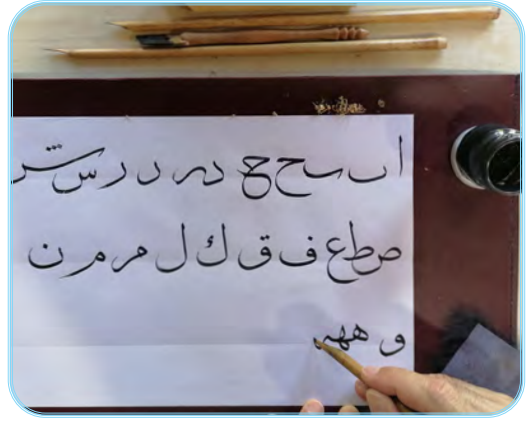 ا ں سح ح د ر ں ر س س
ص ط ع ف ق ك ل م م ن
و ه ه